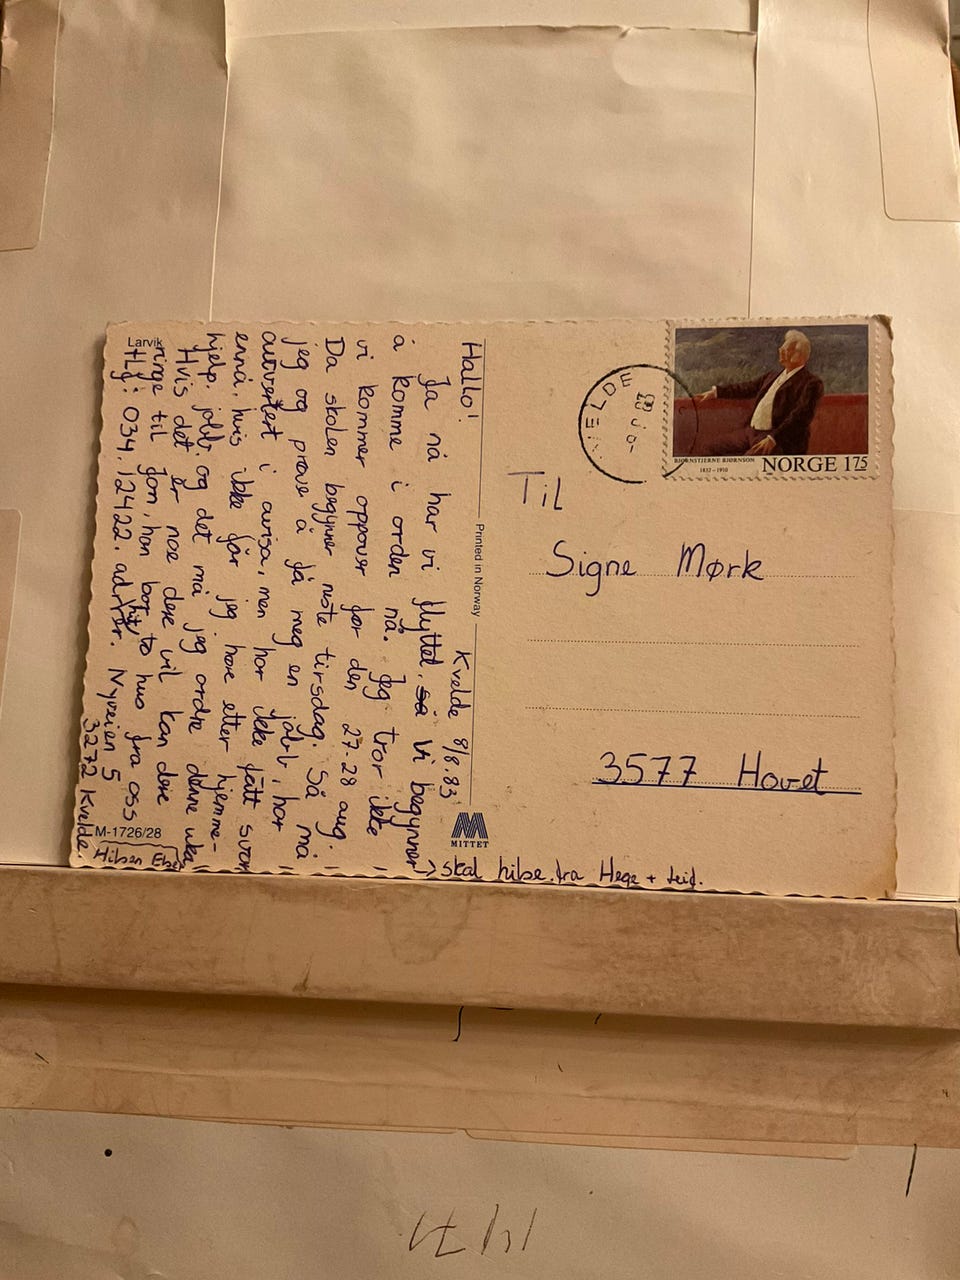 Larvik
Hallo!
Kvelde 8/8.83
Ja nå har vi flyttet, så vi begynner
å komme i orden nå. Jeg tror ikke
vi kommer oppover før den 27-28 aug.
Da skolen begynner neste tirsdag. Så må
jeg og prøve å få meg en jobb, har
avvertert i avisa, men har ikke fått svar
ennå, hvis ikke får jeg høre etter hjemme-
hjelp. jobb og det må jeg ordne denne uka
Hvis det er noe dere vil kan dere
ringe til Jorn, han bor to hus fra oss
tlf: 034.12422. adr. Nyveien 5
3272 Kvelde.
Hilsen
-> skal hilse fra Hege +
M-1726/28
Printed in Norway
MITTET
KVELDE
BJØRNSTJERNE BJØRNSON
1832-1910
NORGE 175
Til
Signe Mørk
3577 Hovet